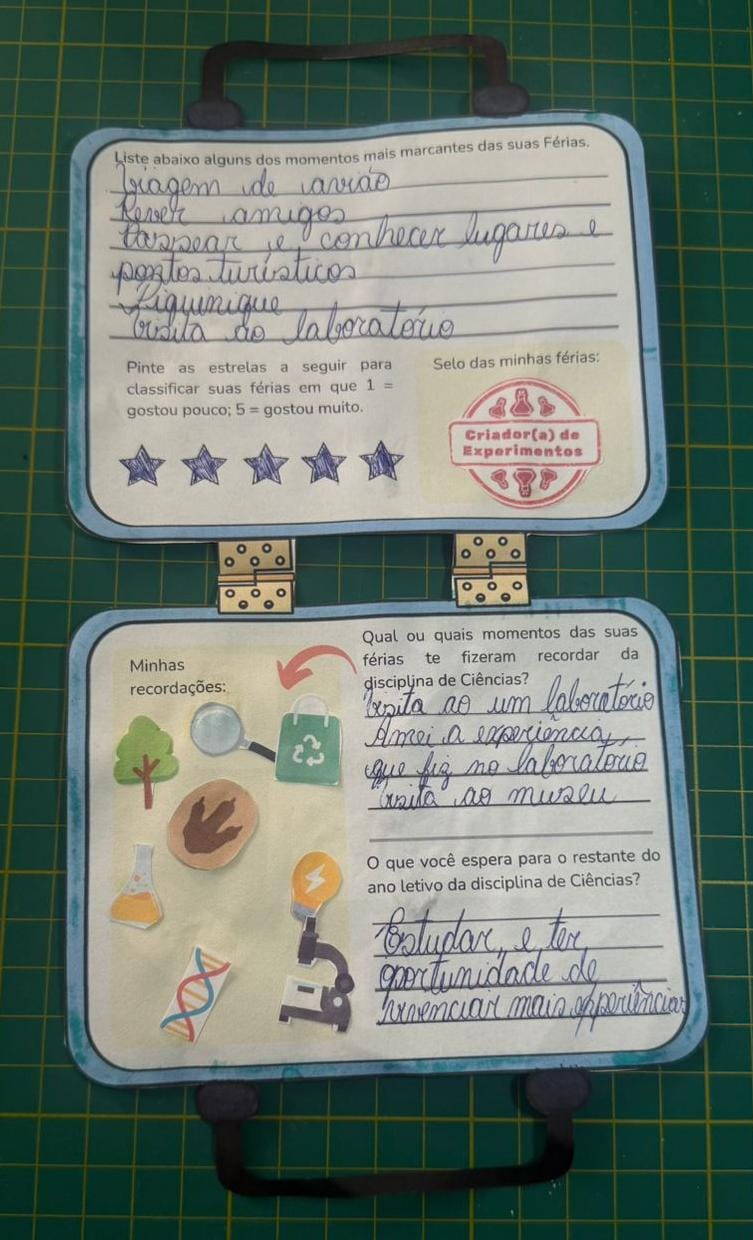 Liste abaixo alguns dos momentos mais marcantes das suas Férias.
Viagem de avião
Rever amigos
Passear e conhecer lugares e
pontos turísticos
Piquinique
Visita ao laboratório
Pinte as estrelas a seguir para
classificar suas férias em que 1 =
gostou pouco; 5 = gostou muito.
Selo das minhas férias:
Criador(a) de
Experimentos
Minhas
recordações:
Qual ou quais momentos das suas
férias te fizeram recordar da
disciplina de Ciências?
Visita ao um laboratório
Amei a experiência,
que fiz no laboratório
Visita ao museu
O que você espera para o restante do
ano letivo da disciplina de Ciências?
Estudar, e ter
oportunidade de
vivenciar mais experiências